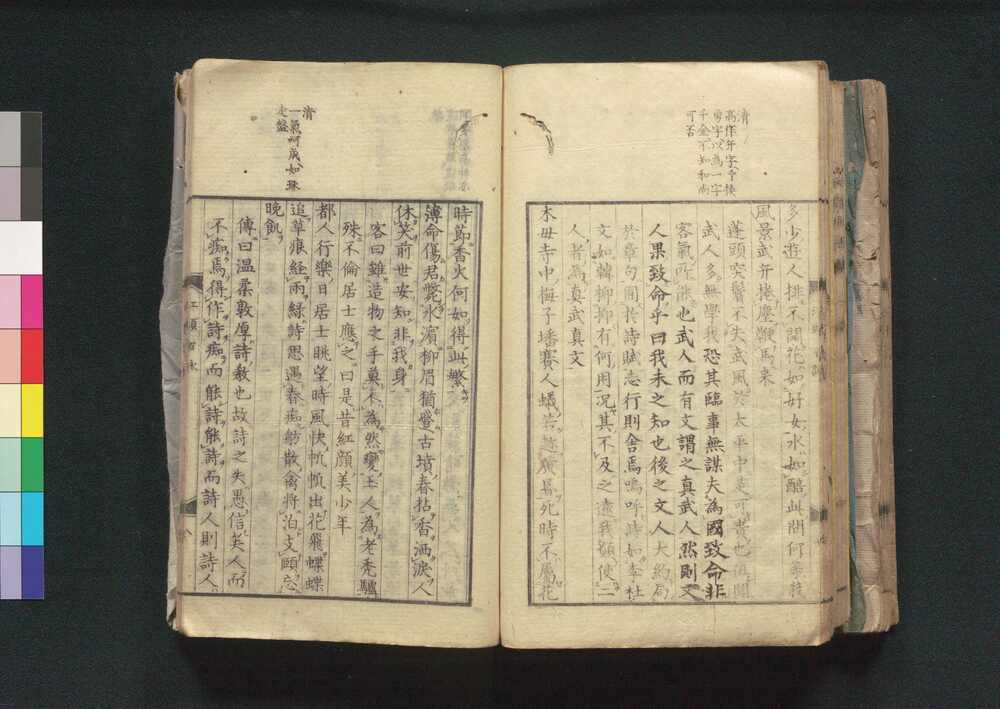 清
高作年字
字以為一字
千金不知和尚
可否
多少遊人排不開花如好女水如醅此間何
風景武弁捲塵鞭馬來
蓬頭突鬢不失武風
武人多無學我恐其臨事無謀夫為國致命非
客氣所濟也武人而有文謂之真武人然則文
人果致命乎曰我未之知也後之文人大約局
於章句間於詩賦志行則舍焉嗚呼詩如李杜
文如韓柳抑有何用况其不及之遠我願使二
人者為真武真文
木母寺中梅子墦賽人蟻 死時不屬花
時節香火何如得此繁
薄命傷君斃水濱柳眉猶蹙古墳春拈香洒淚人
休笑前世安知非我身
客曰雖造物之手莫不為然變玉人為老禿驢
殊不倫居士應之曰是昔紅顏美少年
都人行樂日居士眺望時風快帆帆出花飛蝶蝶
追草痕経雨綠詩思遇春痴舫散禽將泊支頤忘
晚飢
傳曰溫柔敦厚詩教也故詩之失愚信矣人而
不痴焉得作詩痴而能詩能詩而詩人則詩人
清
一氣呵成如珠
走盤